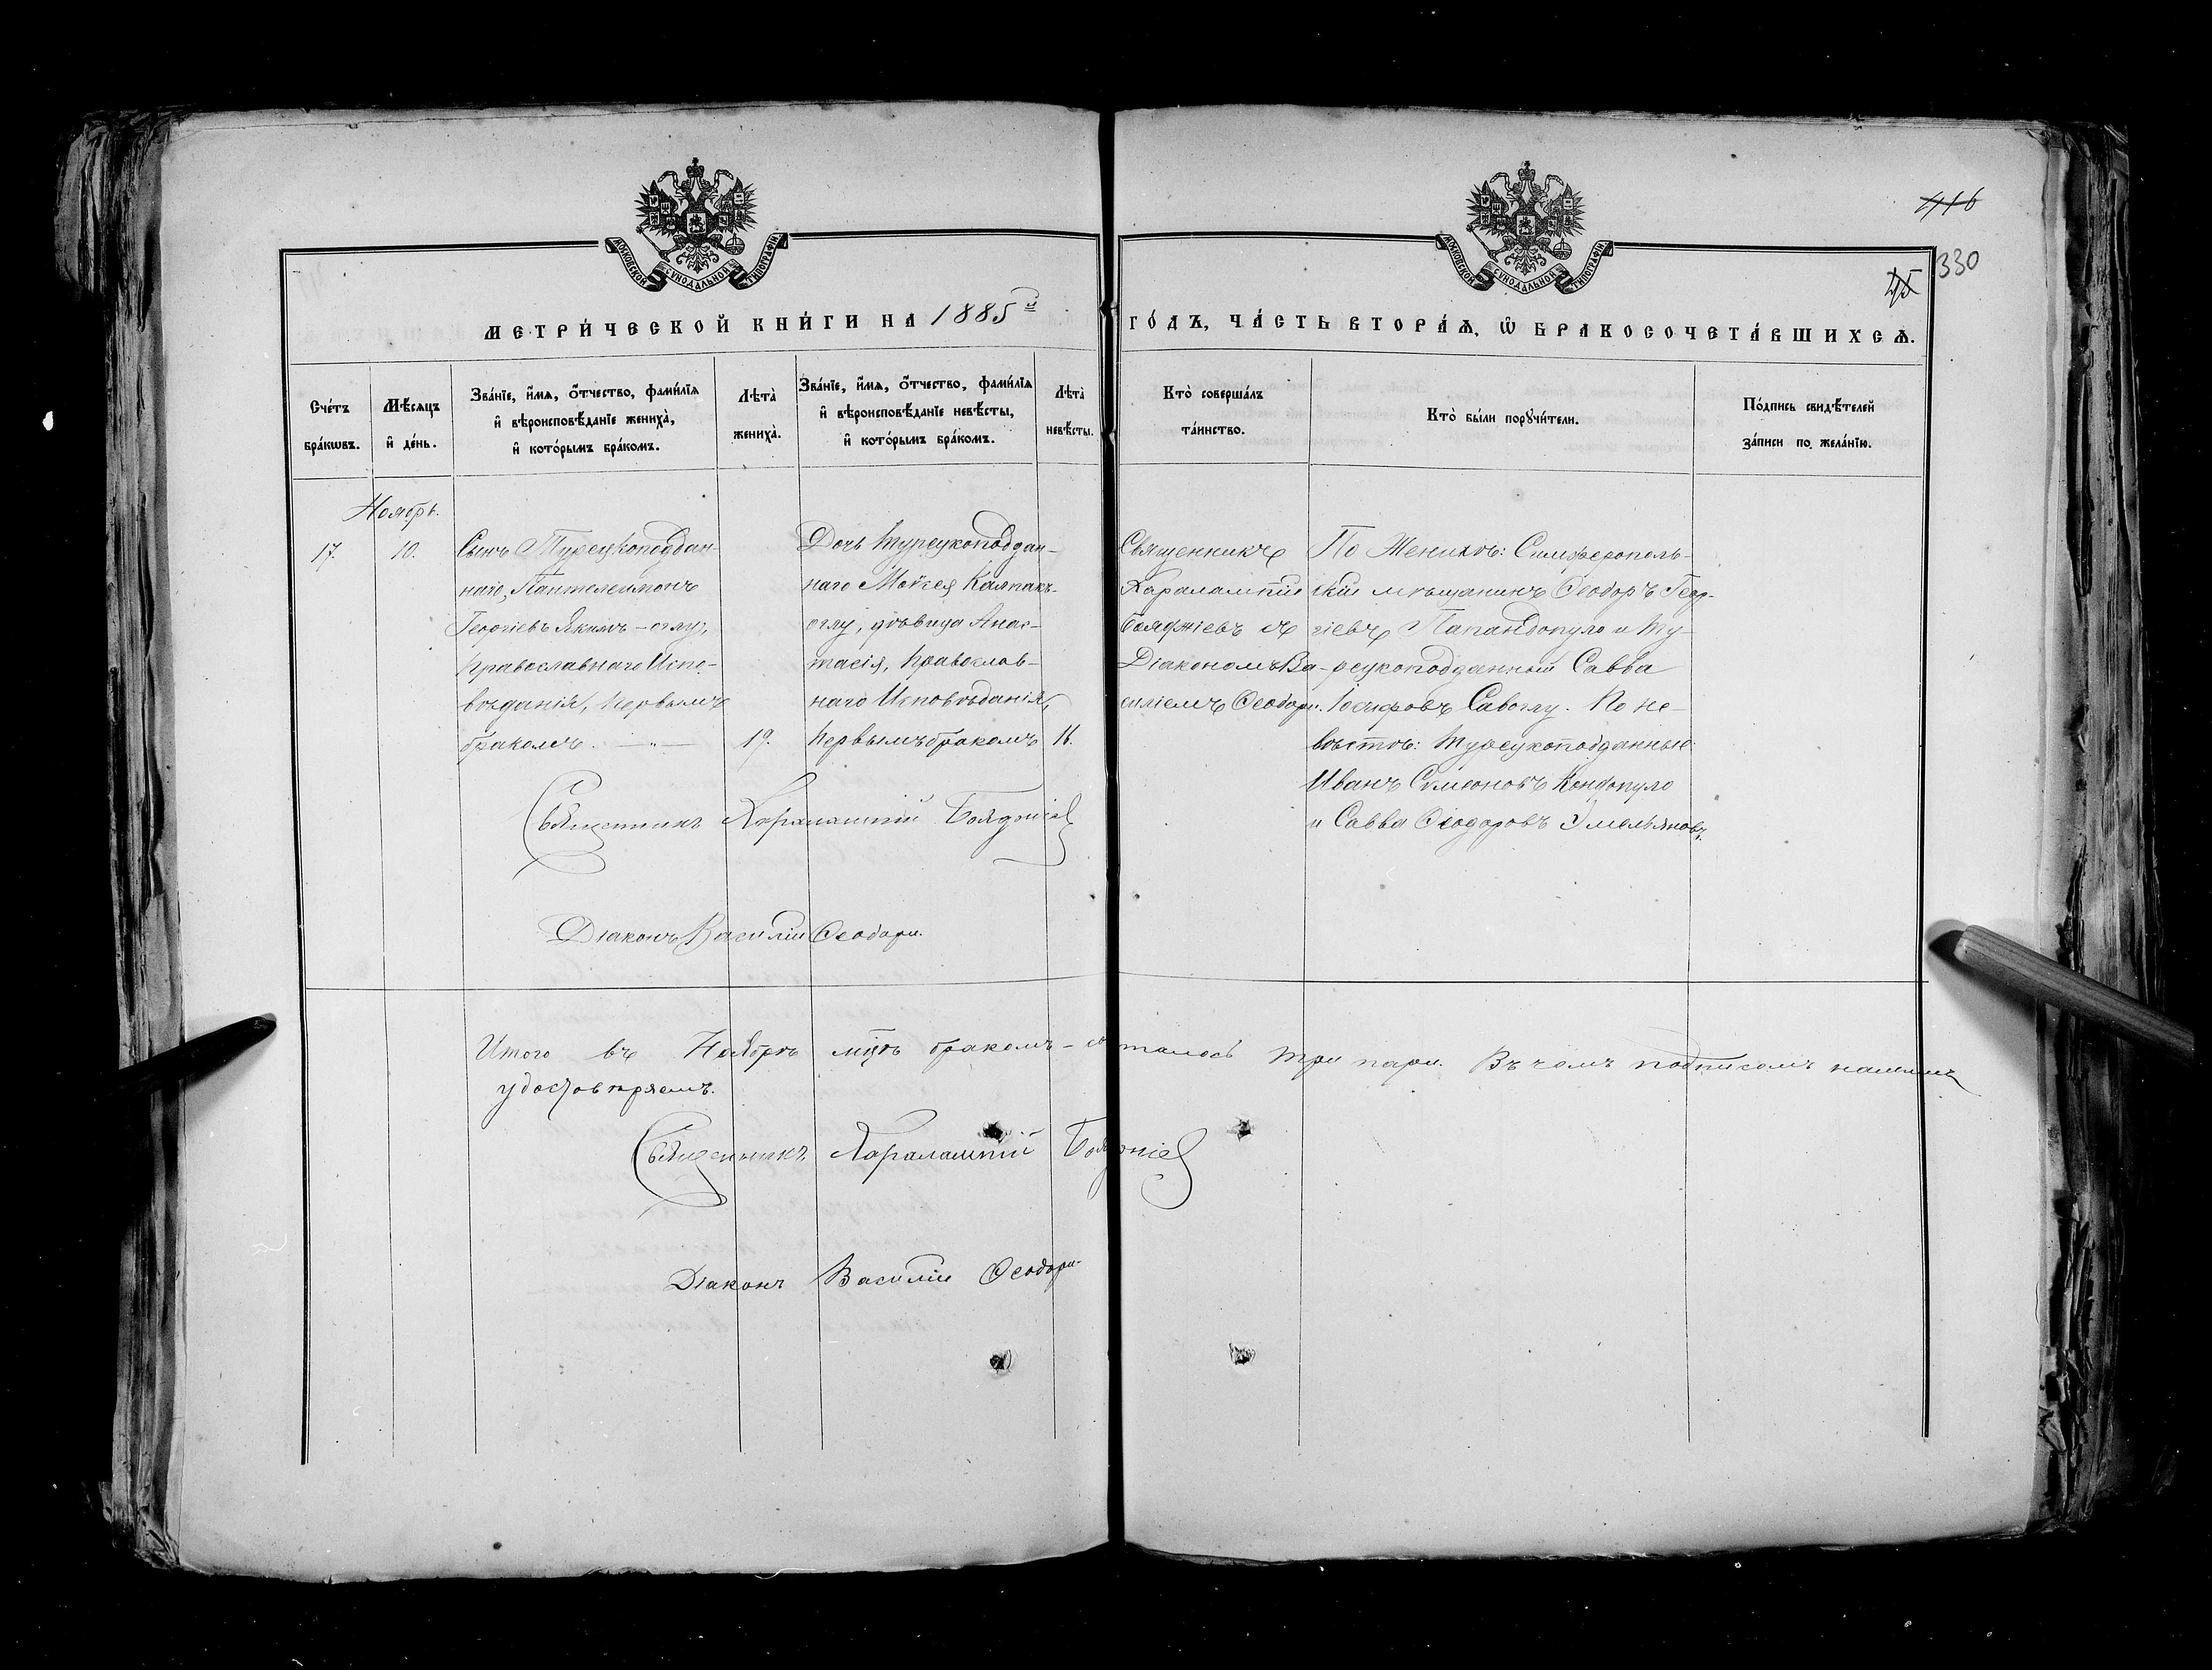 416
330
45
МОСКОВСКОЙ СУНОДАЛЬНОЙ ТИПОГРАФІИ
МОСКОВСКОЙ СУНОДАЛЬНОЙ ТИПОГРАФІИ
МЕТРИ́ЧЕСКОЙ КНИ́ГИ НА 1885й
ГО́ДЪ, ЧА́СТЬ ВТОРА́Ѧ, Ѽ БРАКОСОЧЕТА́ВШИХСѦ.
Сче́тъ
бра́кѡвъ.
Мѣ́сѧцъ
и҆ де́нь.
Зва́нїе, и҆́мѧ, ѻ҆́тчество, фами́лїѧ
и҆ вѣроисповѣ́данїе жениха̀,
и҆ кото́рымъ бра́комъ.
Лѣта̀
жениха̀.
Зва́нїе, и҆́мѧ, ѻ҆́тчество, фами́лїѧ
и҆ вѣроисповѣ́данїе невѣ́сты,
и҆ кото́рымъ бра́комъ.
Лѣта̀
невѣ́сты.
Кто̀ соверша́лъ
та́инство.
Кто̀ бы́ли порꙋчи́тели.
По́дпись свидѣ́телей
за́писи по жела́нїю.
Ноябрь.
17. 10.
Сынъ Турецкоподдан-
наго, Пантелеимонъ
Георгіевъ Якимъ-оглу,
православнаго Испо-
вѣданія, первымъ
бракомъ.
19.
Дочь турецкоподдан-
наго Моѵсея Калпакъ-
оглу, дѣвица Анас-
тасія, православ-
наго Исповѣданія,
первымъ бракомъ
16.
Священникъ
Харалампій
Бояджіевъ съ
Діакономъ Ва-
силіемъ Ѳеодори.
По Женихѣ: Симферополь-
скій мѣщанинъ Ѳеодоръ Геор-
гіевъ Папандопуло и ту-
рецкоподданный Савва
Іосифовъ Савоглу. По не-
вѣстѣ: турецкоподданные:
Иванъ Симеоновъ Кондопуло
и Савва Ѳеодоровъ Эмельяновъ.
Священникъ Харалампій Бояджіев
Діаконъ Василій Ѳеодори.
Итого въ Ноябрѣ мцѣ бракомъ-осталось три пари. Въ чемъ подписомъ нашимъ
удостовѣряемъ.
Священникъ Харалампій Бояджіев
Діаконъ Василій Ѳеодори.